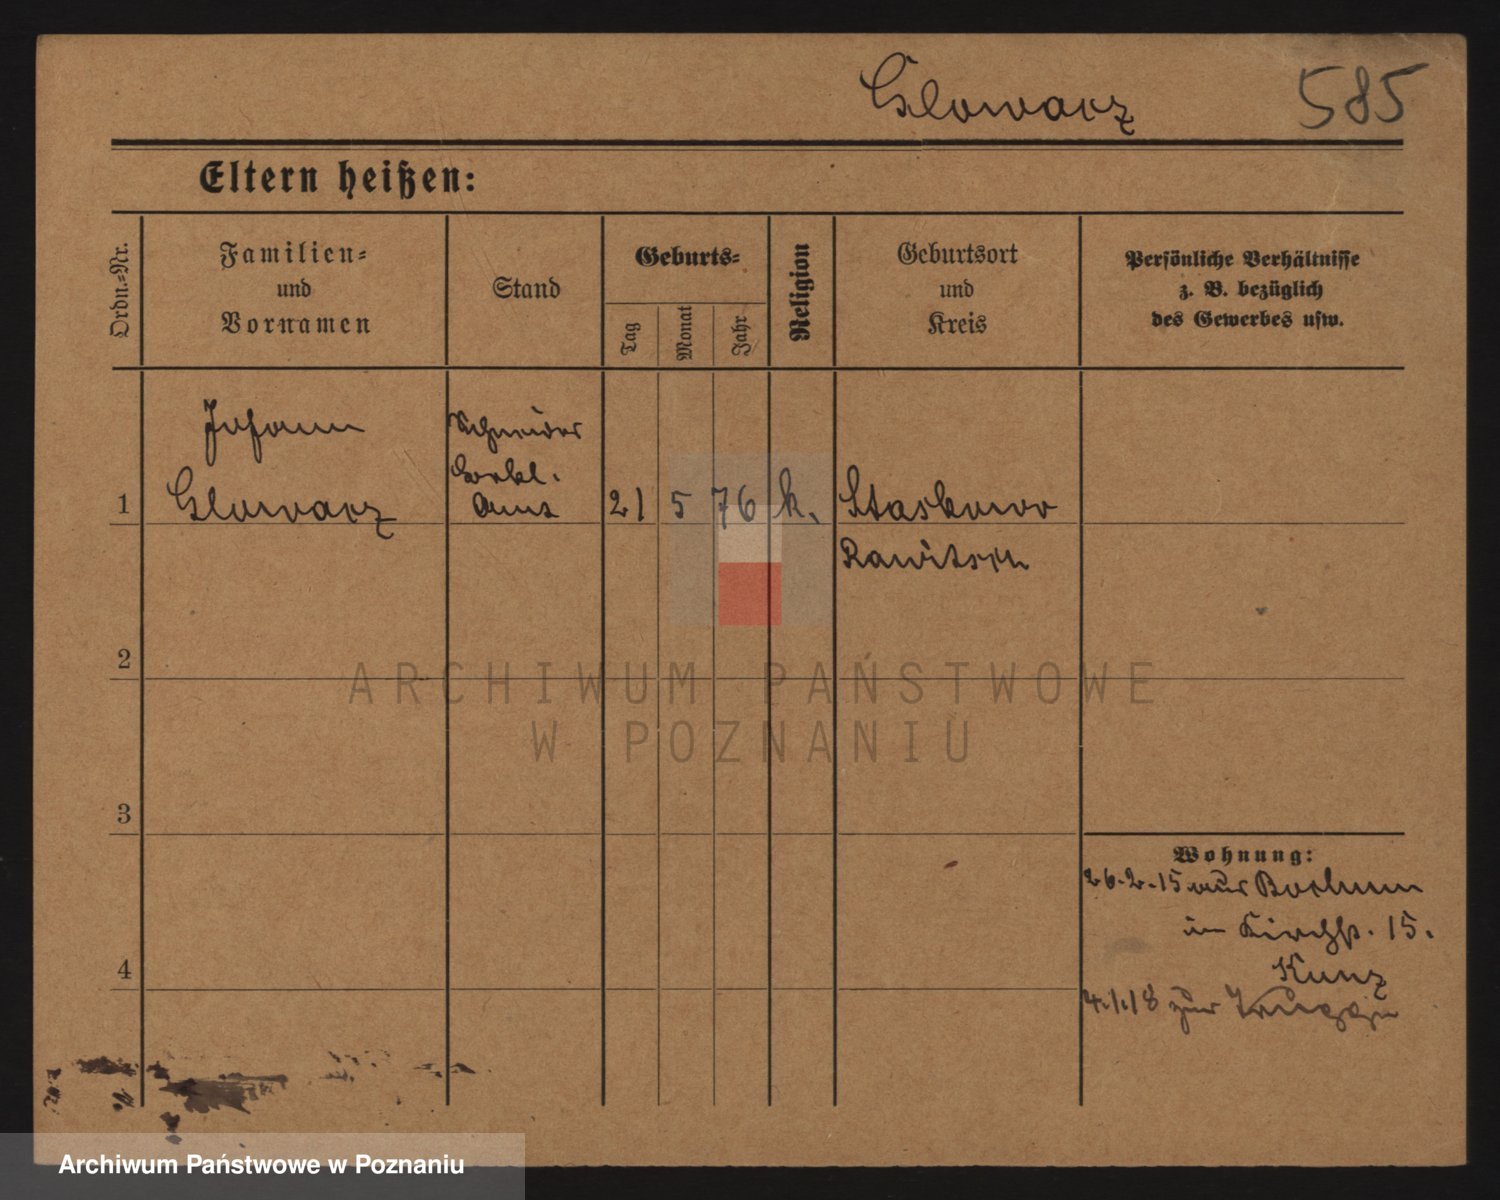 Glowacz 585
Eltern heißen:
Ordn.=Nr.
Familien=
und
Vornamen
Stand
Geburts=
Tag
Monat
Jahr
Religion
Geburtsort
und
Kreis
Persönliche Verhältnisse
z. B. bezüglich
des Gewerbes usw.
Johann
Schneider
1 Glowacz 21 5 76 k. Staskowo
Rawitsch
2
3
4
Wohnung:
26.2.15 aus Bochum
in Kirchstr. 15.
Kunz
4.1.18 zur Truppe
ARCHIWUM PAŃSTWOWE
W POZNANIU
Archiwum Państwowe w Poznaniu